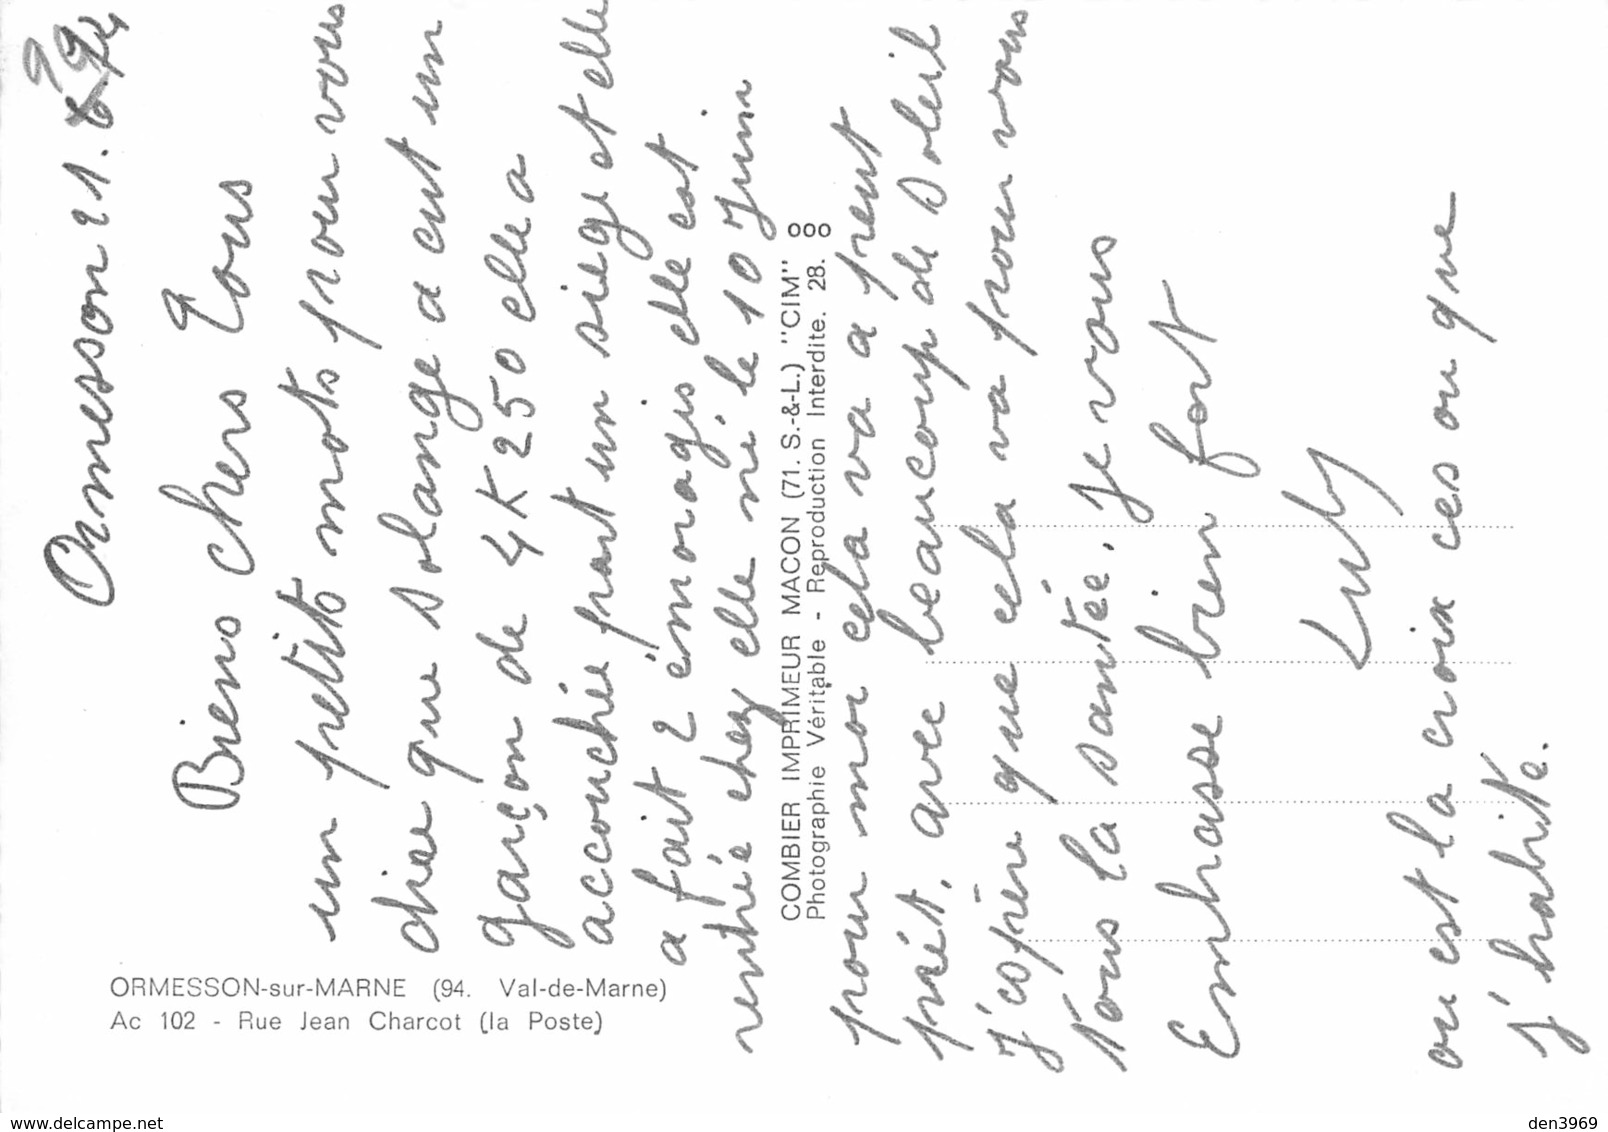 Ormesson 21.
Biens chers Tous
un petits mots pour vous
dire que Solange a eut un
garçon de 4K250 elle a
accouchée part un siege et elle
a fait 2 émoragis elle est
rentrée chez elle né le 10 Juin
pour moi cela va a peut
prét. avec beaucoup de Soleil
J'éspère que cela va pour vous
Tous la santée. je vous
Embrasse bien fort
ou est la croix ces ou que
j'habite.
COMBIER IMPRIMEUR MACON (71. S.-&-L.) "CIM"
Photographie Véritable - Reproduction Interdite. 28.
ORMESSON-sur-MARNE (94. Val-de-Marne)
Ac 102 - Rue Jean Charcot (la Poste)
www.delcampe.net
den3969